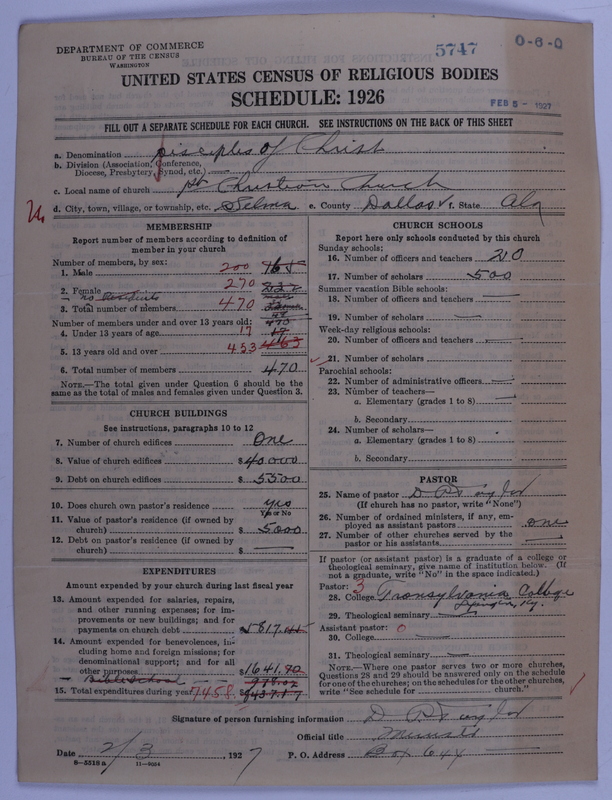 DEPARTMENT OF COMMERCE
BUREAU OF THE CENSUS
WASHINGTON
5747
0-6-0
UNITED STATES CENSUS OF RELIGIOUS BODIES
SCHEDULE: 1926
FEB 5 - 1927
FILL OUT A SEPARATE SCHEDULE FOR EACH CHURCH. SEE INSTRUCTIONS ON THE BACK OF THIS SHEET
a. Denomination Disciples Of Christ
b. Division (Association, Conference,
Diocese, Presbytery, Synod, etc.)
c. Local name of church 1st Christian Church
d. City, town, village, or township, etc. Selma e. County Dallas f. State Ala
MEMBERSHIP
Report number of members according to definition of
member in your church
Number of members, by sex:
1. Male 200
2. Female 270
3. Total number of members 470
Number of members under and over 13 years old:
4. Under 13 years of age 17
5. 13 years old and over 453
6. Total number of members 470
NOTE.—The total given under Question 6 should be
the same as the total of males and females given under Question 3.
CHURCH BUILDINGS
See instructions, paragraphs 10 to 12
7. Number of church edifices One
8. Value of church edifices $40000
9. Debt on church edifices $5500
10. Does church own pastor's residence yes
Yes or No
11. Value of pastor's residence (if owned by
church) $5000
12. Debt on pastor's residence (if owned by
church) $
EXPENDITURES
Amount expended by your church during last fiscal year
13. Amount expended for salaries, repairs,
and other running expenses; for im-
provements or new buildings; and for
payments on church debt 5817
14. Amount expended for benevolences, in-
cluding home and foreign missions; for
denominational support; and for all
other purposes $1641.
15. Total expenditures during year 7458
CHURCH SCHOOLS
Report here only schools conducted by this church
Sunday schools:
16. Number of officers and teachers 20
17. Number of scholars 500
Summer vacation Bible schools:
18. Number of officers and teachers
19. Number of scholars
Week-day religious schools:
20. Number of officers and teachers
21. Number of scholars
Parochial schools:
22. Number of administrative officers
23. Number of teachers—
a. Elementary (grades 1 to 8)
b. Secondary
24. Number of scholars—
a. Elementary (grades 1 to 8)
b. Secondary
PASTOR
25. Name of pastor D P
(If church has no pastor, write "None")
26. Number of ordained ministers, if any, em-
ployed as assistant pastors one
27. Number of other churches served by the
pastor or his assistants
If pastor (or assistant pastor) is a graduate of a college or
theological seminary, give name of institution below. (If
not a graduate, write "No" in the space indicated.)
Pastor: 3
28. College Transylvania College
Ky.
29. Theological seminary
Assistant pastor: 0
30. College
31. Theological seminary
NOTE.—Where one pastor serves two or more churches,
Questions 28 and 29 should be answered only on the schedule
for one of the churches; on the schedules for the other churches,
write "See schedule for church."
Signature of person furnishing information D P
Official title
Date 2/3, 1927 P. O. Address Box 644
8-5518a 11-9024